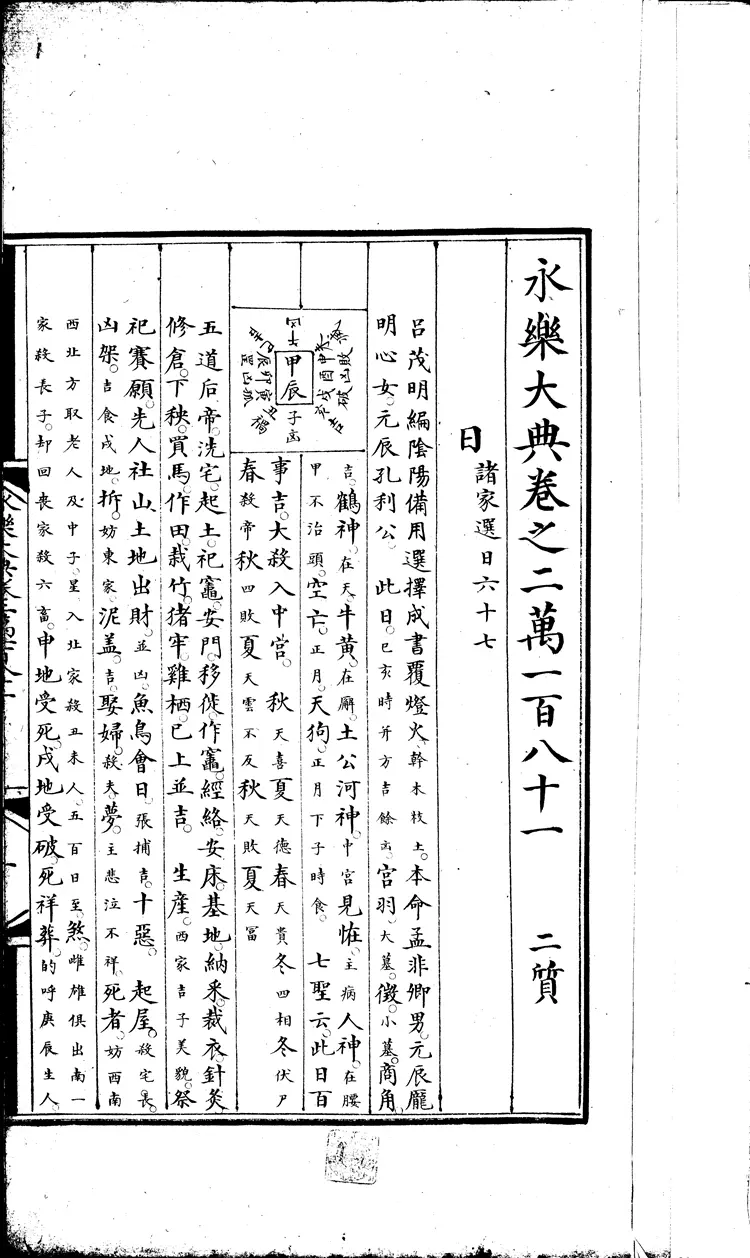 永樂大典卷之二萬一百八十一 二質
日 諸家選日六十七
呂茂明編陰陽備用選擇成書覆燈火幹木枝土本命孟非卿男元辰龐
明心女元辰孔利公 此日巳亥時并方吉餘凶宮羽大墓徵小墓商角
甲辰
吉鶴神在天牛黃在廨土公河神中宮見恠主病人神在腰
甲不治頭空亡正月天狗正月下子時食 七聖云此日百
事吉大殺入中宮 秋天喜夏天德春天貴冬四相冬伏尸
春殺帝秋四敗夏天雲不反秋天敗夏天冨
五道后帝洗宅起土祀竈安門移徙作竈經絡安床基地納采裁衣針灸
修倉下秧買馬作田栽竹猪牢雞栖巳上並吉 生産西家吉子美貌祭
祀賽願先人社山土地出財並凶魚鳥會日張捕吉十惡 起屋殺宅長
凶架吉食戌地拆妨東家泥盖吉娶婦殺夫夢主悲泣不祥死者妨西南
西北方取老人及中子星入北家殺丑未人五百日至煞雌雄俱出南一
家殺長子却回喪家殺六畜申地受死戌地受破死祥葬的呼庚辰生人